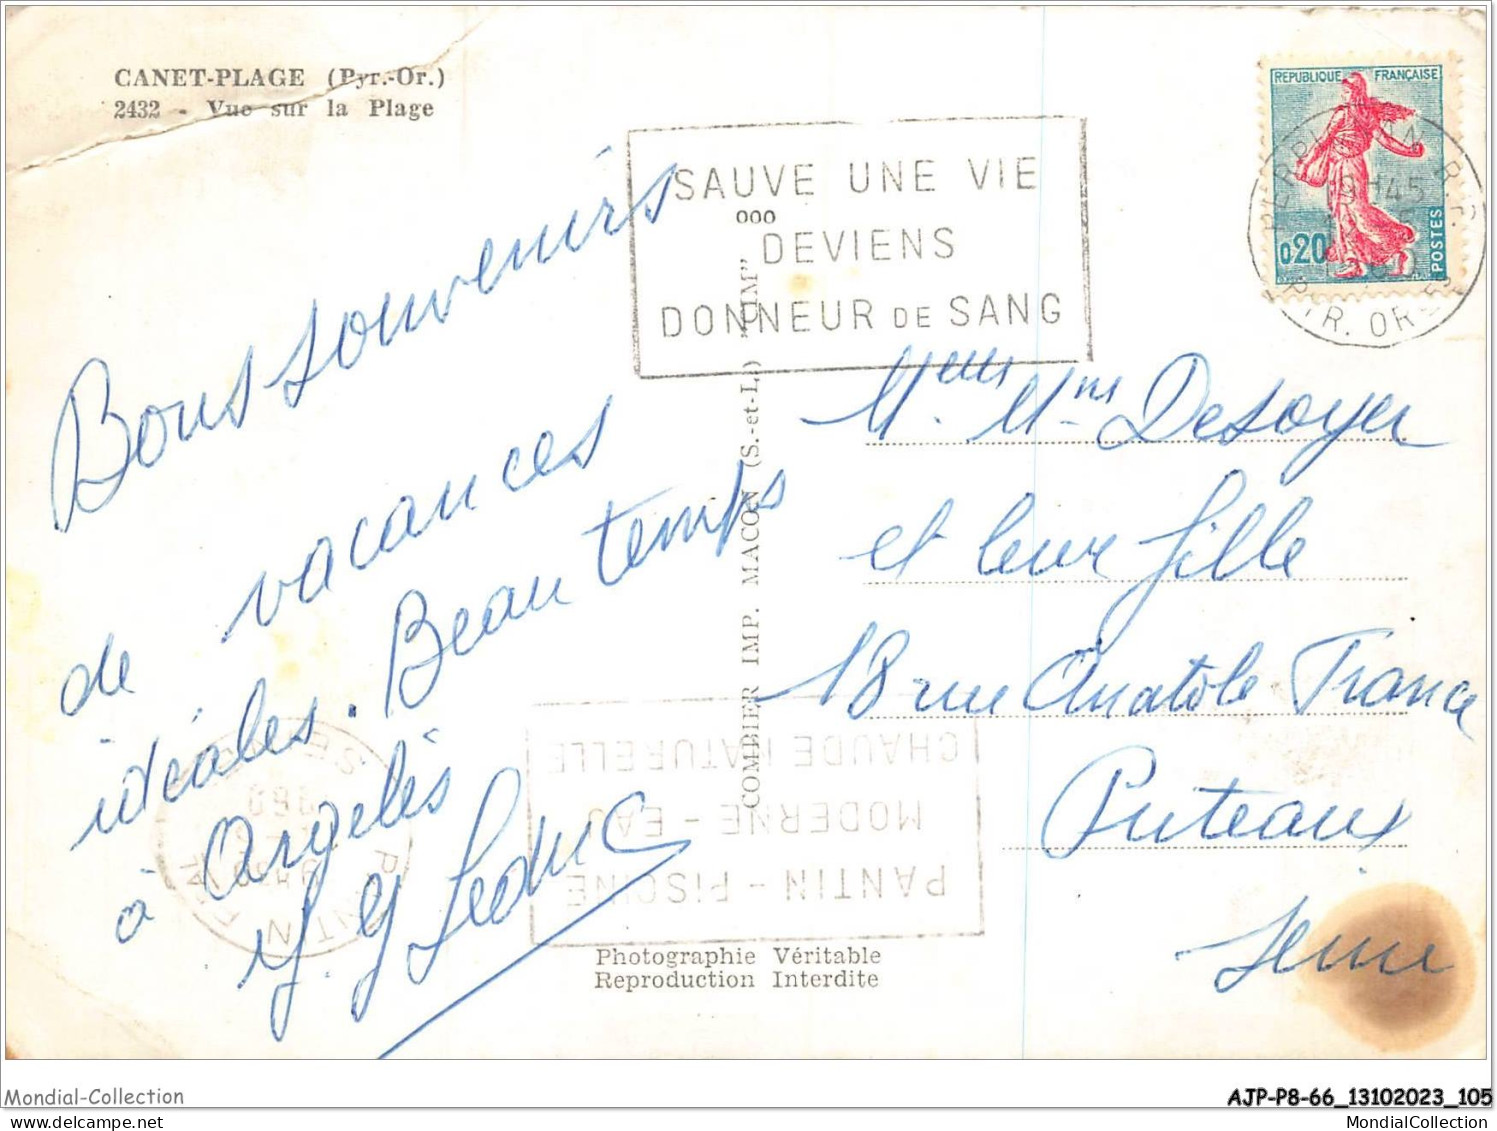 CANET-PLAGE (Pyr.-Or.)
2432 - Vue sur la Plage
Bons souvenirs
de vacances
idéales. Beau temps
à Argelès
Leduc
SAUVE UNE VIE
DEVIENS
DONNEUR DE SANG
COMBIER IMP. MACON (S.-et-L.) "CIM"
REPUBLIQUE FRANÇAISE
0,20
POSTES
PERPIGNAN R.P.
19H45
PYR. ORles
Desoyer
et leur fille
18 rue Anatole France
Puteaux
Seine
PANTIN - PISCINE
MODERNE - EAU
CHAUDE NATURELLE
Photographie Véritable
Reproduction Interdite
Mondial-Collection
AJP-P8-66_13102023_105
MondialCollection